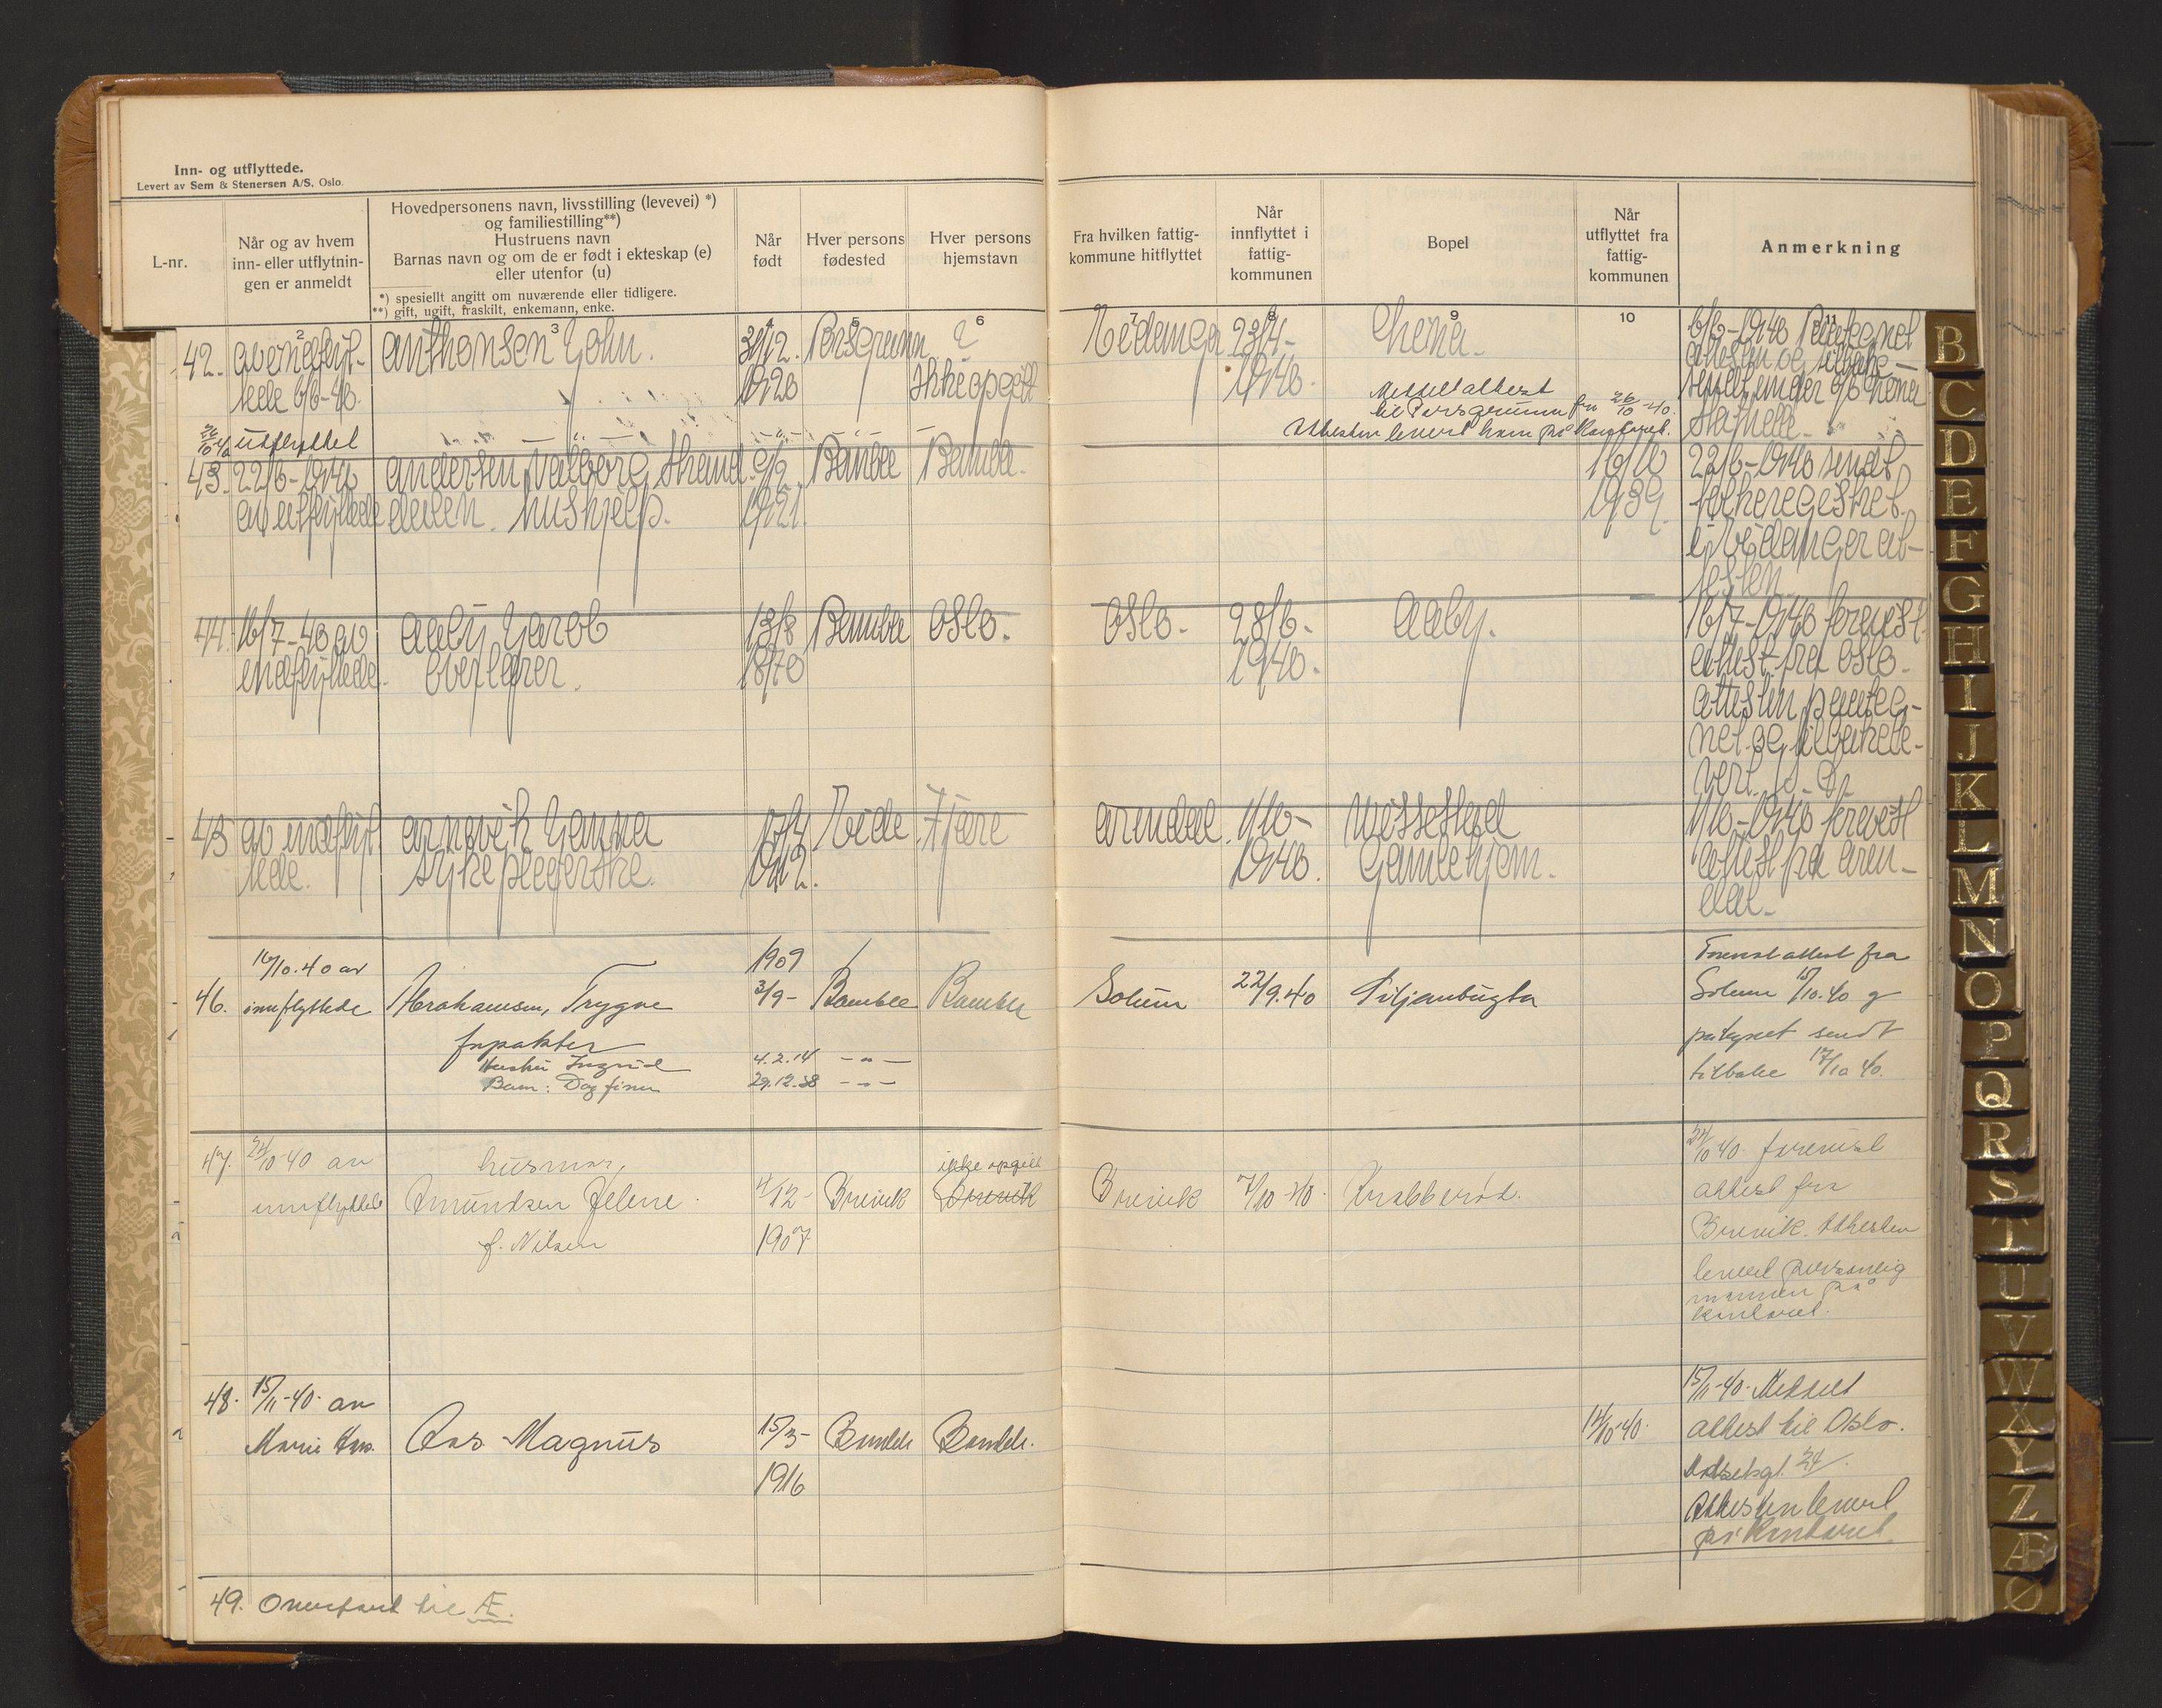 Inn- og utflyttede.
Levert av Sem & Stenersen A/S, Oslo.
L-nr.
Når og av hvem
inn- eller utflytnin-
gen er anmeldt
Hovedpersonens navn, livsstilling (levevei) *)
og familiestilling**)
Hustruens navn
Barnas navn og om de er født i ekteskap (e)
eller utenfor (u)
*) spesielt angitt om nuværende eller tidligere.
**) gift, ugift, fraskilt, enkemann, enke.
Når
født
Hver persons
fødested
Hver persons
hjemstavn
Fra hvilken fattig-
kommune hitflyttet
Når
innflyttet i
fattig-
kommunen
Bopel
Når
utflyttet fra
fattig-
kommunen
Anmerkning
2 3 4 5 6 7 8 9 10 11
42. av indflyt- Anthonsen John. 31/12. Porsgrunn ? Eidanger 23/4- 6/6-1940 Paategnet
tede 6/6-40. 1920 Ikke opgitt 1940. attesten og tilbake-
Meldt attest
til Porsgrunn fra 26/10-40.
Attesten levert ham på kontoret.
Stathelle
26/10 40 utflyttet
43. 22/6-1940 Andersen Valborg Strand- 9/2 Bamble Bamble. 22/6-1940 sendt
av utflyttede dalen. hushjelp. 1921. 1939. folkeregistret
i Eidanger at-
testen
44. 16/7-40 av Aaby Jacob 13/8 Bamble Oslo. Oslo. 28/6- Aaby. 16/7-1940 forevist
indflyttede. Overlærer. 1870 1940. attest fra Oslo.
attesten paateg-
net og tilbakele-
vert
45 av indflyt- Arnevik Janna Eide Fjære Arendal. 1/10- 1/10-1940 forevist
tede. sykepleierske. 1912. 1940. Gamlehjem. attest fra Aren-
dal-
16/10.40 av 1909 Forevist attest fra
46. innflyttede Abrahamsen, Trygve 3/9- Bamble Bamble Solum 22/9.40 Siljanbugta Solum 15/10.40 og
forpakter påtegnet sendt
Hustru Ingrid 4.2.14 - " - tilbake 17/10 40.
Barn: Dag Finn 29.12.38 - " -
47. 24/10-40 av husmor, ikke opgitt 24/10 40 forevist
innflyttede Amundsen Helene. 4/12- Brevik Brevik Brevik 7/10-40. Krabberød. attest fra
f. Nilsen 1907 Brevik. Attesten
levert personlig
mannen på
kontoret.
48. 15/11-40. av 15/11-40. Meldt
Marie Aas. Aas Magnus 15/3- Bamble Bamble. 12/10-40. attest til Oslo.
1916 24/.
Attesten levert
på kontoret.
49. Overført til Æ.
B
C
D
E
F
G
H
I
J
K
L
M
N
O
P
Q
R
S
T
U
V
W
X
Y
Z
Æ
Ø